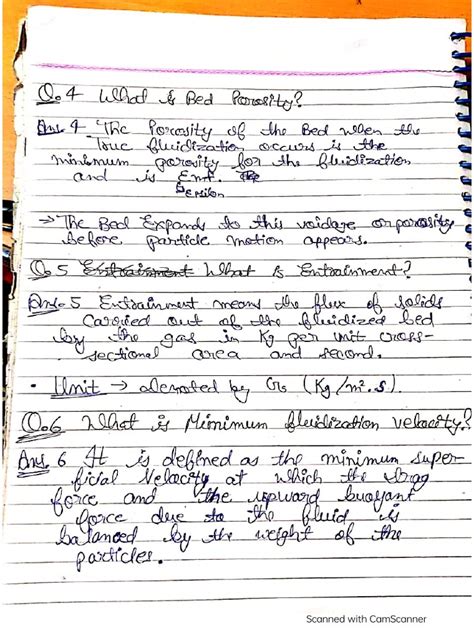 Q.4 What is Bed Porosity?
Ans. 4 The Porosity of the Bed when the
True fluidization occurs is the
minimum porosity for the fluidization
and is Emf.
Epsilon
→ The Bed Expands to this voidage or porosity
before particle motion appears.
Q.5 Entrainment What is Entrainment?
Ans. 5 Entrainment means the flux of solids
Carried out of the fluidized bed
by the gas in Kg per unit cross-
sectional area and second.
• Unit → denoted by Gs (Kg/m².s).
Q.6 What is Minimum fluidization velocity?
Ans. 6 It is defined as the minimum super-
fical Velocity at which the drag
force and the upward buoyant
force due to the fluid is
balanced by the weight of the
particles.
Scanned with CamScanner